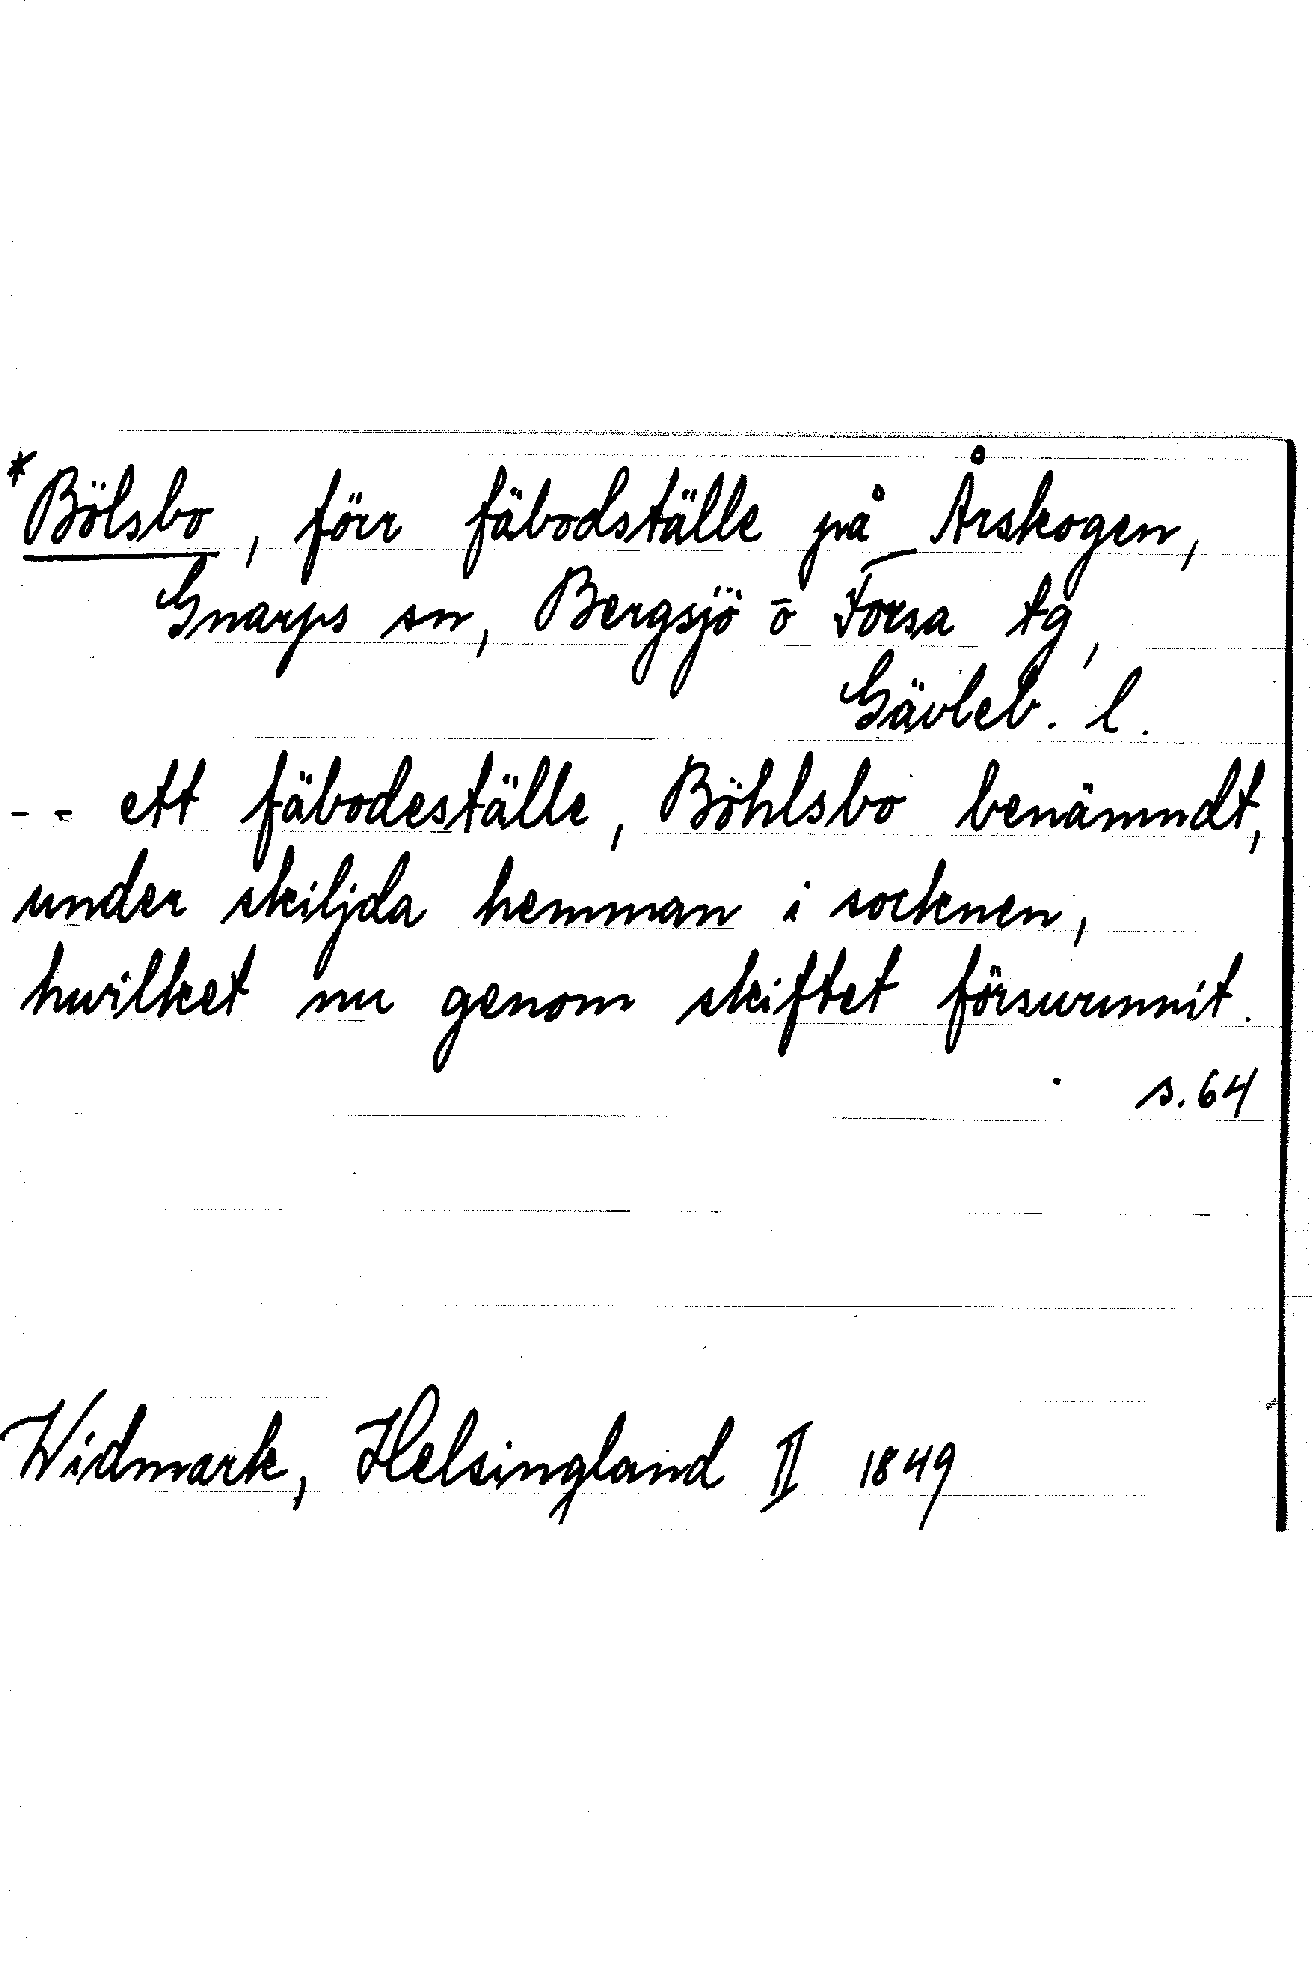 *Bölsbo, förr fäbodställe på Årskogen,
Gnarps sn, Bergsjö o Forsa tg,
Gävleb. l.
-- ett fäbodeställe, Böhlsbo benämndt,
under skiljda hemman i socknen,
hwilket nu genom skiftet förswunnit.
s. 64
Widmark, Helsingland II 1849